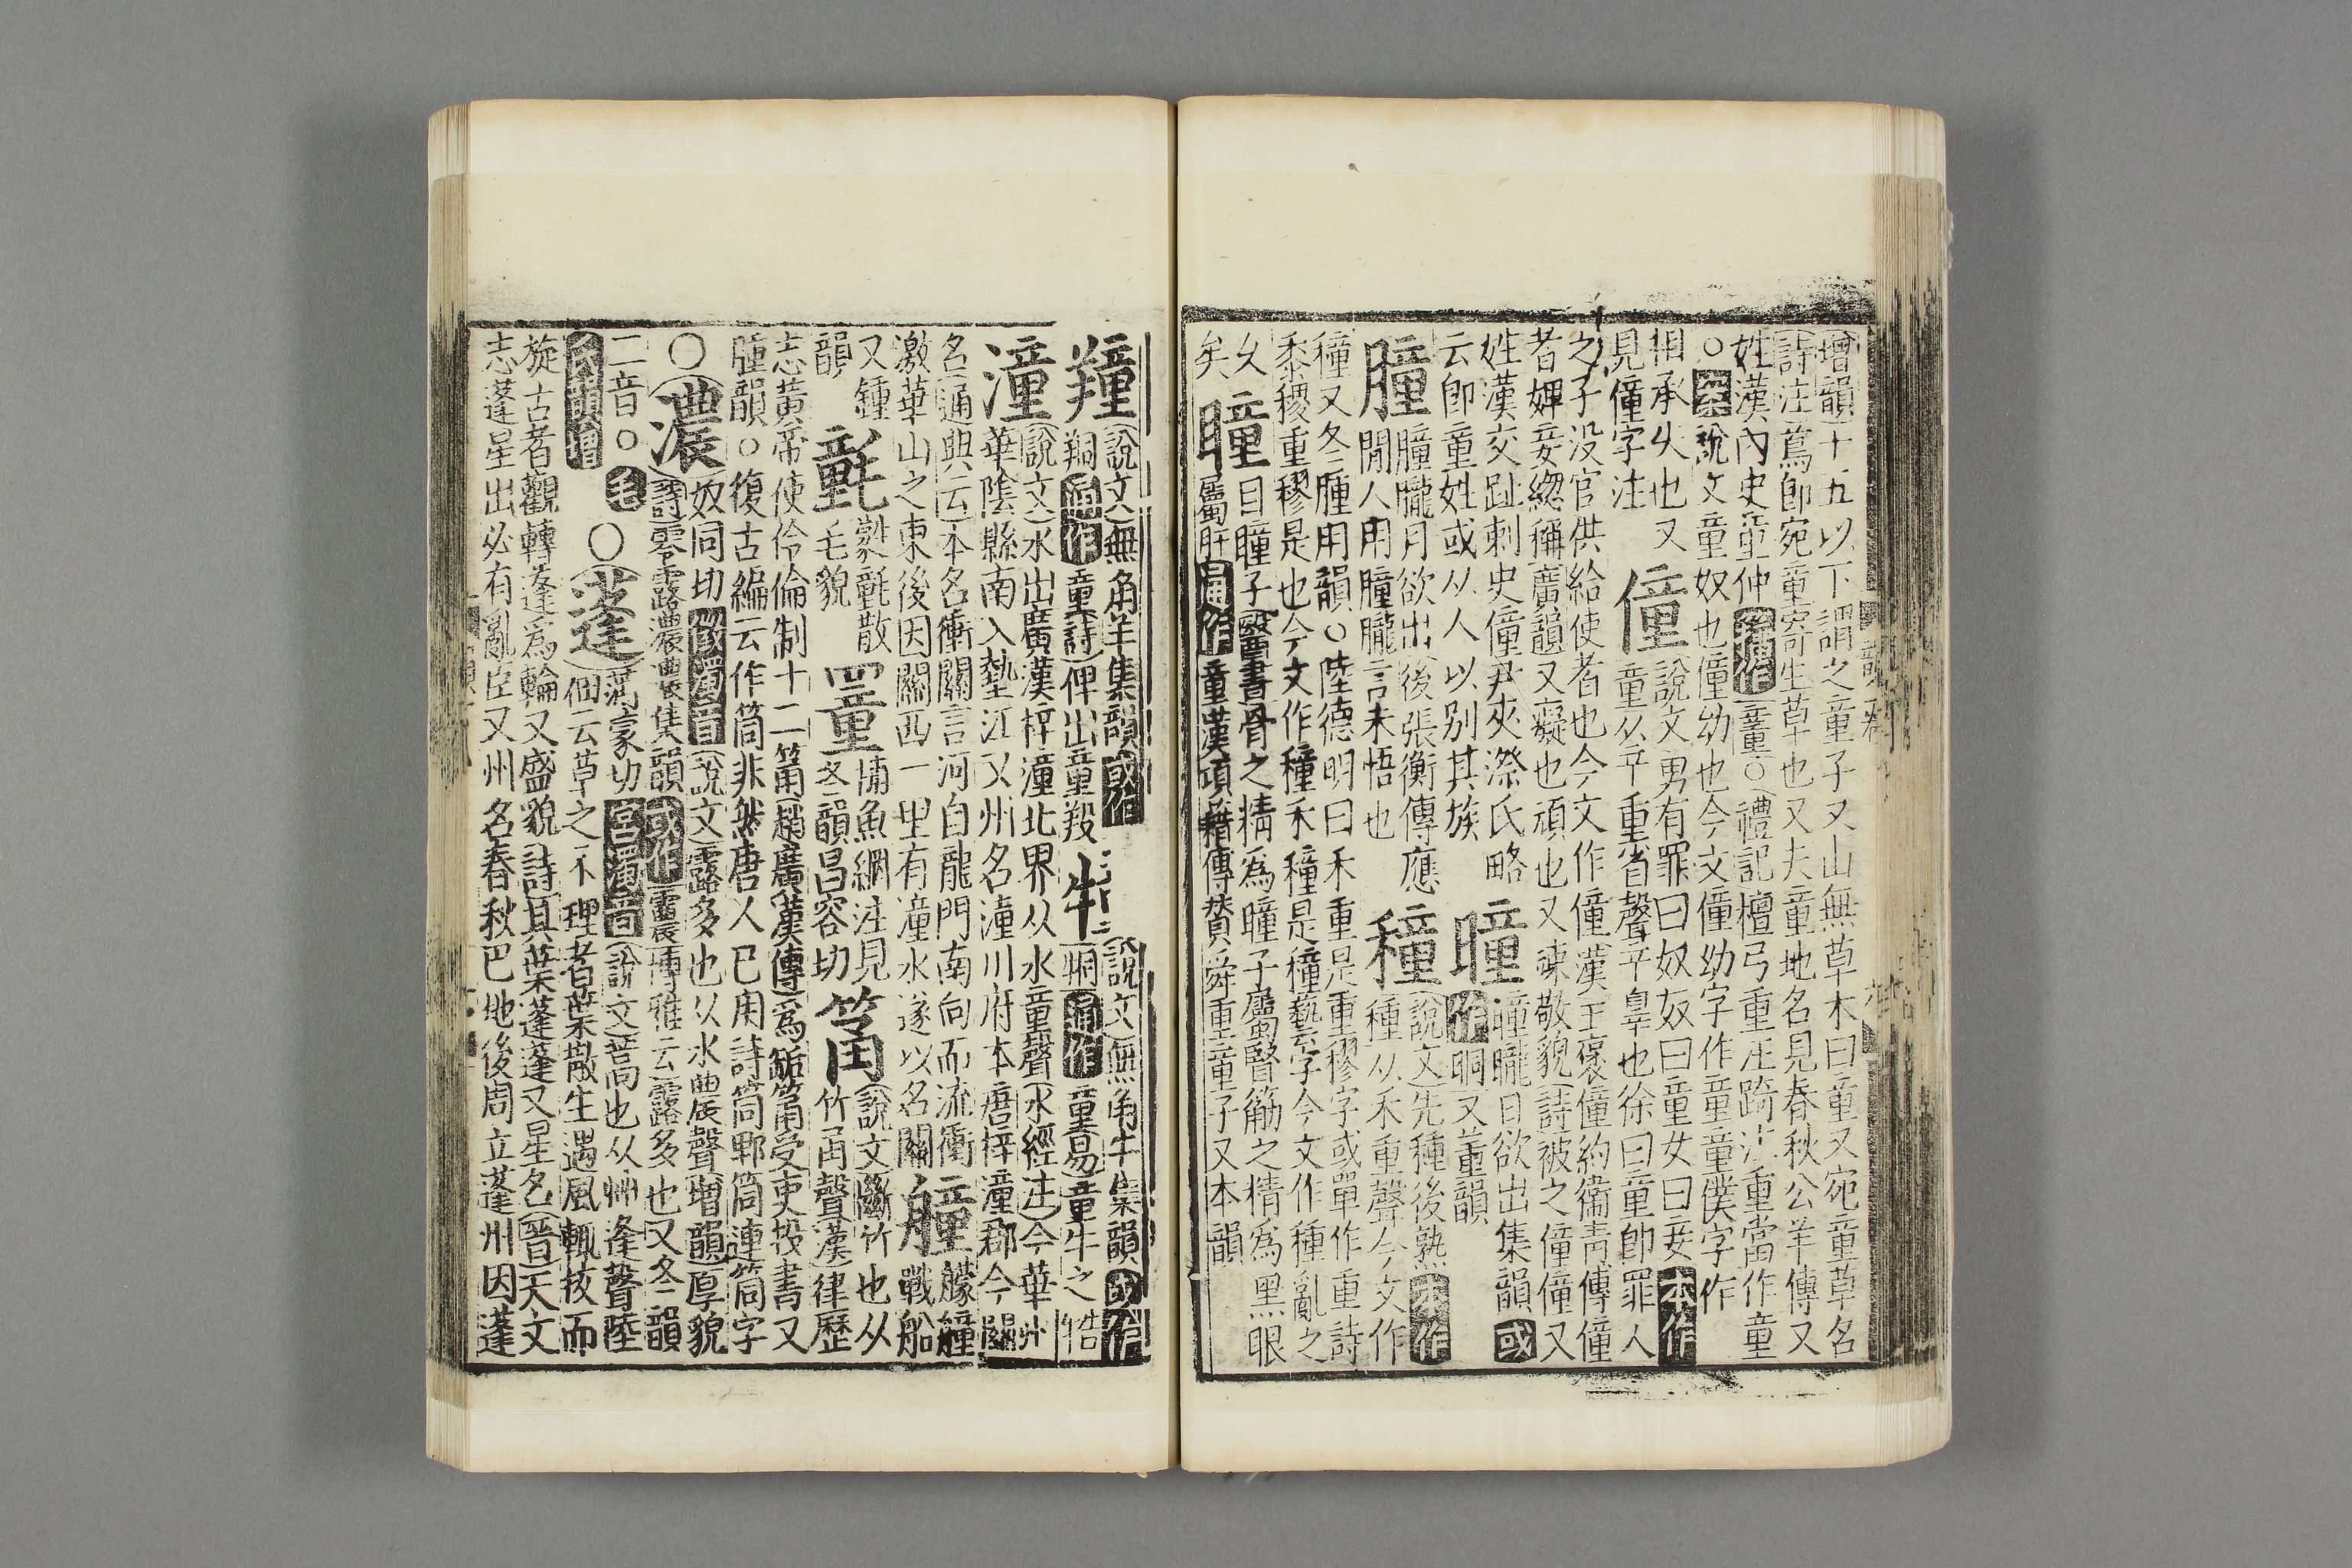 增韻十五以下謂之童子又山無草木曰童又宛童草名
詩注蔦卽宛童寄生草也又夫童地名見春秋公羊傳又
姓漢內史童仲 通作 童○禮記檀弓重汪踦注重當作童
○ 案 說文童奴也僮幼也今文僮幼字作童童僕字作
相承失也又
見僮字注
僮
說文男有罪曰奴奴曰童女曰妾 本作
童从䇂重省聲䇂辠也徐曰童卽罪人
之子没官供給使者也今文作僮漢王褒僮約衞青傳僮
者婢妾緫稱廣韻又癡也頑也又竦敬貌詩被之僮僮又
姓漢交趾刺史僮尹夾漈氏略
云卽童姓或从人以别其族
曈
曈曨日欲出集韻 或
作 晍又董韻
朣
朣朧月欲出後張衡傳應
閒人用朣朧言未悟也
穜
說文先種後熟 本作
種从禾重聲今文作
穜又冬腫用韻○陸德明曰禾重是重穋字或單作重詩
黍稷重穋是也今文作種禾穜是穜藝字今文作種亂之
久
矣
瞳
目瞳子醫書骨之精爲瞳子屬腎筋之精爲黑眼
屬肝 通作 童漢項籍傳贊舜重童子又本韻
羵
說文無角羊集韻 或作
羫 通作 童詩俾出童羖
犝
說文無角牛集韻 或作
㸗 通作 童易童牛之牿
潼
說文水出廣漢梓潼北界从水童聲水經注今華州
華陰縣南入墊江又州名潼川府本唐梓潼郡今關
名通典云本名衝關言河自龍門南向而流衝
激華山之東後因關西一里有潼水遂以名關
艟
艨艟
戰船
又鍾
韻
氃
氋氃散
毛貌
罿
捕魚網注見
冬韻昌容切
筩
說文斷竹也从
竹甬聲漢律歷
志黃帝使伶倫制十二筩趙廣漢傳爲缿筩受吏投書又
腫韻○復古編云作筒非然唐人已用詩筒郫筒連筒字
○
濃
奴同切 徵濁音 說文露多也以水農聲增韻厚貌
詩零露濃濃集韻 或作 震博雅云露多也又冬韻
二音○ 毛
氏韻增
○
蓬
蒲蒙切 宮濁音 說文蒿也从艸逢聲陸
佃云草之不理者葉散生遇風輒拔而
旋古者觀轉蓬爲輪又盛貌詩其葉蓬蓬又星名晉天文
志蓬星出必有亂臣又州名春秋巴地後周立蓬州因蓬